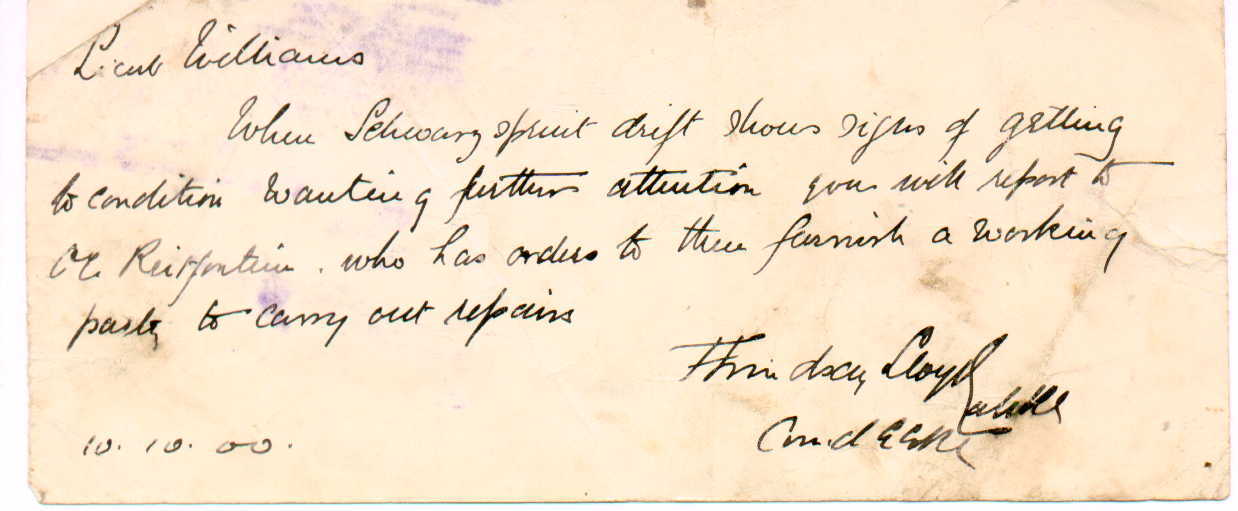 Lieut Williams
When Schwarzspruit drift shows signs of getting
to condition wanting further attention you will report to
OC. Reitfontein. who has orders to then furnish a working
party to carry out repairs
Lindsay Lloyd
10. 10. 00.